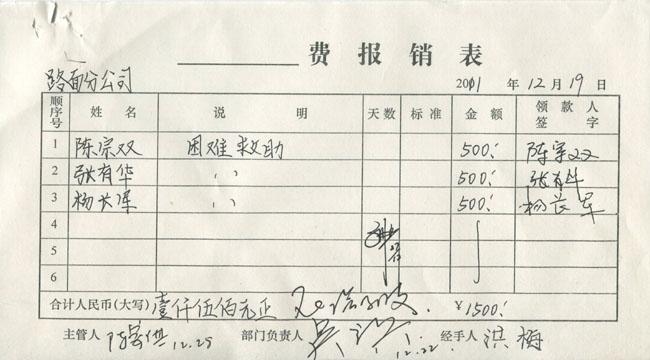 费报销表
路面分公司 2001 年 12 月 19 日
顺序号 姓名 说明 天数 标准 金额 领款人签字
1 陈宗双 困难救助 500.- 陈宗双
2 张有华 〃 500.- 张有华
3 杨长军 〃 500.- 杨长军
4
5
6
合计人民币(大写) 壹仟伍佰元正 ¥1500.-
主管人 12.25 部门负责人 12.22 经手人 洪梅